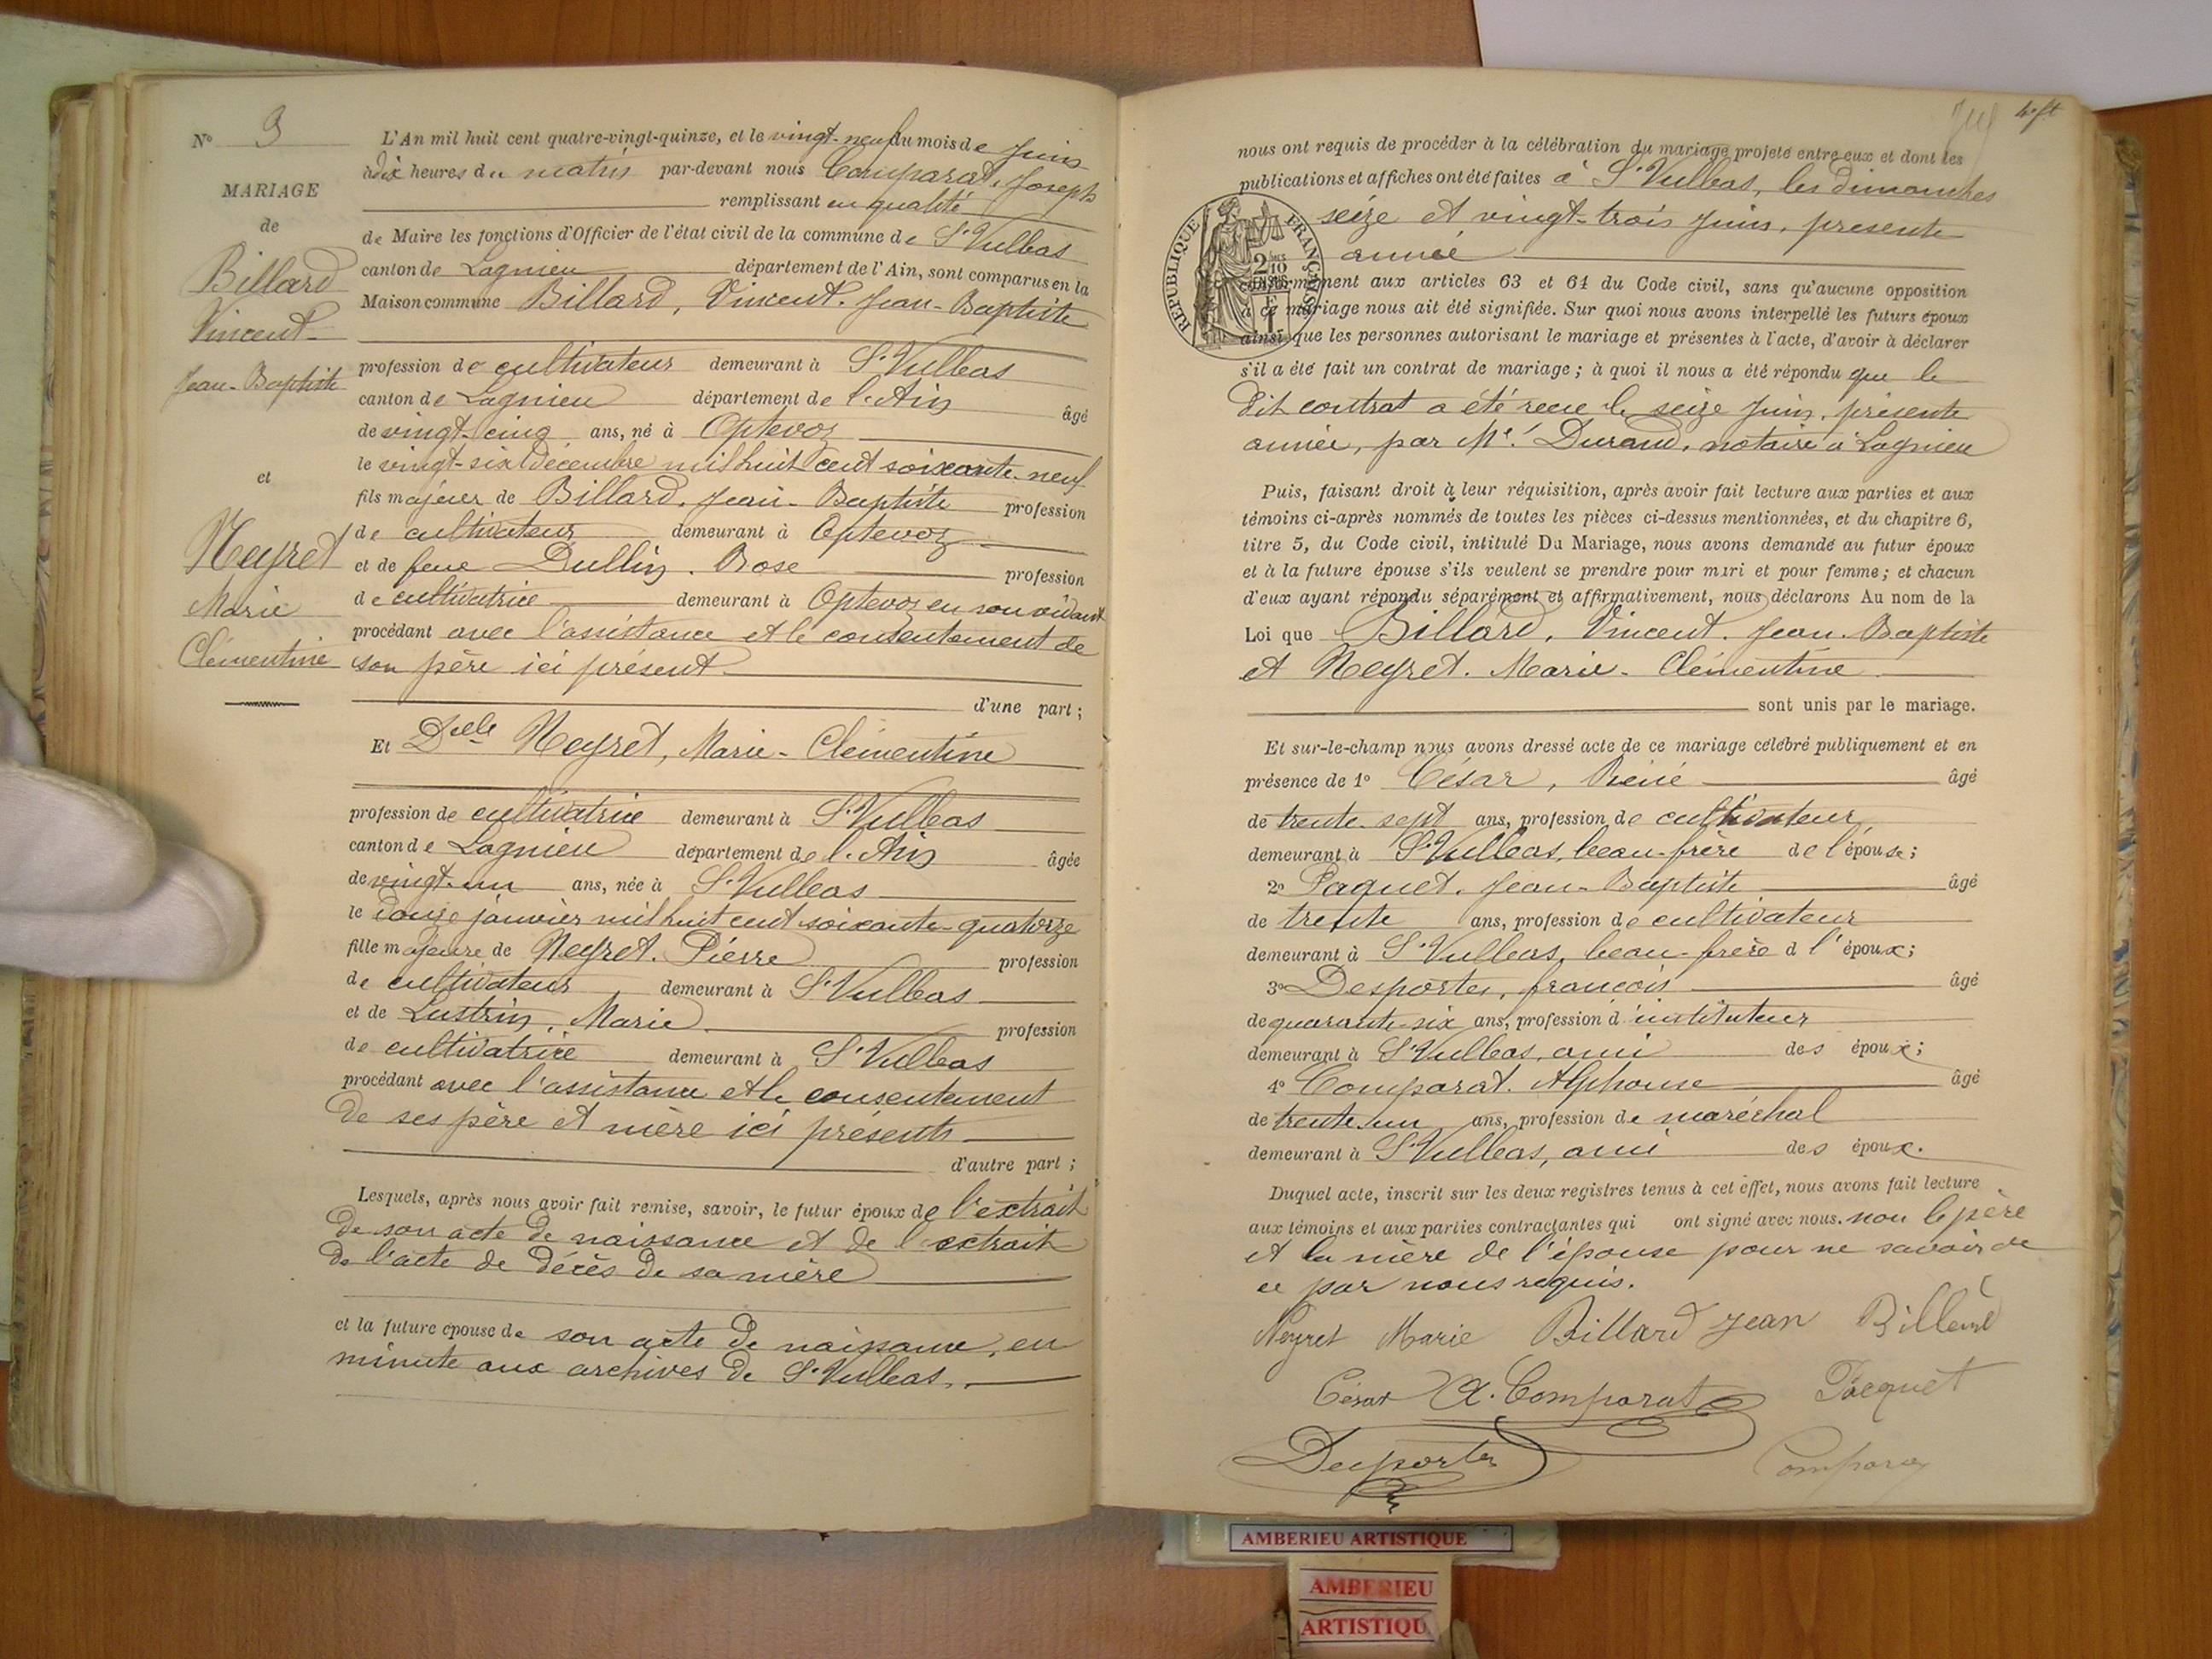 N° 3
MARIAGE
de
Billard
Vincent
Jean-Baptiste
et
Neyret
Marie
Clémentine
L'An mil huit cent quatre-vingt-quinze, et le vingt-neuf du mois de Juin
à dix heures du matin par-devant nous Comparat, Joseph
remplissant en qualité
de Maire les fonctions d'Officier de l'état civil de la commune de St Vulbas
canton de Lagnieu département de l'Ain, sont comparus en la
Maison commune Billard, Vincent. Jean-Baptiste
profession de cultivateur demeurant à St Vulbas
canton de Lagnieu département de l'Ain âgé
de vingt-cinq ans, né à Optevoz
le vingt-six Décembre mil huit cent soixante-neuf
fils majeur de Billard, Jean-Baptiste profession
de cultivateur demeurant à Optevoz
et de feue Dullin. Rose profession
de cultivatrice demeurant à Optevoz en son vivant
procédant avec l'assistance et le consentement de
son père ici présent
d'une part;
Et Delle Neyret, Marie-Clémentine
profession de cultivatrice demeurant à St Vulbas
canton de Lagnieu département de l'Ain âgée
de vingt-un ans, née à St Vulbas
le douze janvier mil huit cent soixante-quatorze
fille majeure de Neyret. Pierre profession
de cultivateur demeurant à St Vulbas
et de Lustrin, Marie profession
de cultivatrice demeurant à St Vulbas
procédant avec l'assistance et le consentement
de ses père et mère ici présents
d'autre part;
Lesquels, après nous avoir fait remise, savoir, le futur époux de l'extrait
de son acte de naissance et de l'extrait
de l'acte de décès de sa mère
et la future épouse de son acte de naissance, en
minute aux archives de St Vulbas.
nous ont requis de procéder à la célébration du mariage projeté entre eux et dont les
publications et affiches ont été faites à St Vulbas, les dimanches
seize et vingt-trois Juin, présente
année
RÉPUBLIQUE FRANÇAISE
conformément aux articles 63 et 64 du Code civil, sans qu'aucune opposition
à ce mariage nous ait été signifiée. Sur quoi nous avons interpellé les futurs époux
ainsi que les personnes autorisant le mariage et présentes à l'acte, d'avoir à déclarer
s'il a été fait un contrat de mariage; à quoi il nous a été répondu que le
dit contrat a été reçu le seize Juin, présente
année, par Me Durand, notaire à Lagnieu
Puis, faisant droit à leur réquisition, après avoir fait lecture aux parties et aux
témoins ci-après nommés de toutes les pièces ci-dessus mentionnées, et du chapitre 6,
titre 5, du Code civil, intitulé Du Mariage, nous avons demandé au futur époux
et à la future épouse s'ils veulent se prendre pour mari et pour femme; et chacun
d'eux ayant répondu séparément et affirmativement, nous déclarons Au nom de la
Loi que Billard, Vincent. Jean-Baptiste
et Neyret. Marie-Clémentine
sont unis par le mariage.
Et sur-le-champ nous avons dressé acte de ce mariage célébré publiquement et en
présence de 1° César, René âgé
de trente-sept ans, profession de cultivateur
demeurant à St Vulbas, beau-frère de l'épouse;
2° Paquet. Jean-Baptiste âgé
de trente ans, profession de cultivateur
demeurant à St Vulbas, beau-frère d l'époux;
3° Desportes, françois âgé
de quarante-six ans, profession d'instituteur
demeurant à St Vulbas, ami des époux;
4° Comparat. Alphonse âgé
de trente-un ans, profession de maréchal
demeurant à St Vulbas, ami des époux.
Duquel acte, inscrit sur les deux registres tenus à cet effet, nous avons fait lecture
aux témoins et aux parties contractantes qui ont signé avec nous. non le père
et la mère de l'épouse pour ne savoir de
ce par nous requis.
Neyret Marie Billard Jean Billard
César A. Comparat Pacquet
Desportes Comparat
AMBERIEU ARTISTIQUE
AMBERIEU
ARTISTIQU